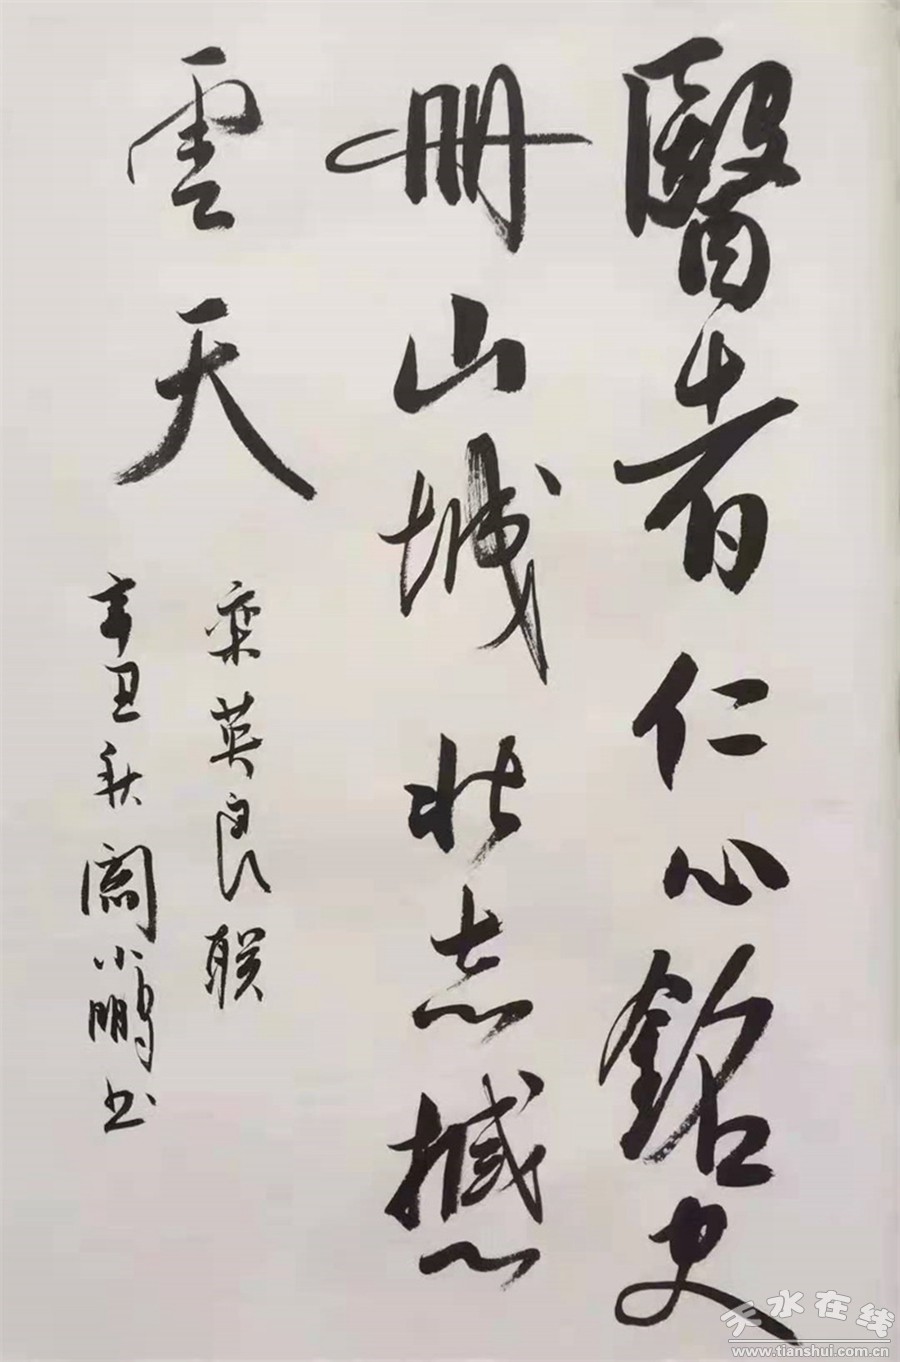 醫者仁心銘史
冊山城壯志撼
雲天
栾英良联
辛丑秋阎小鹏书
天水在线
www.tianshui.com.cn